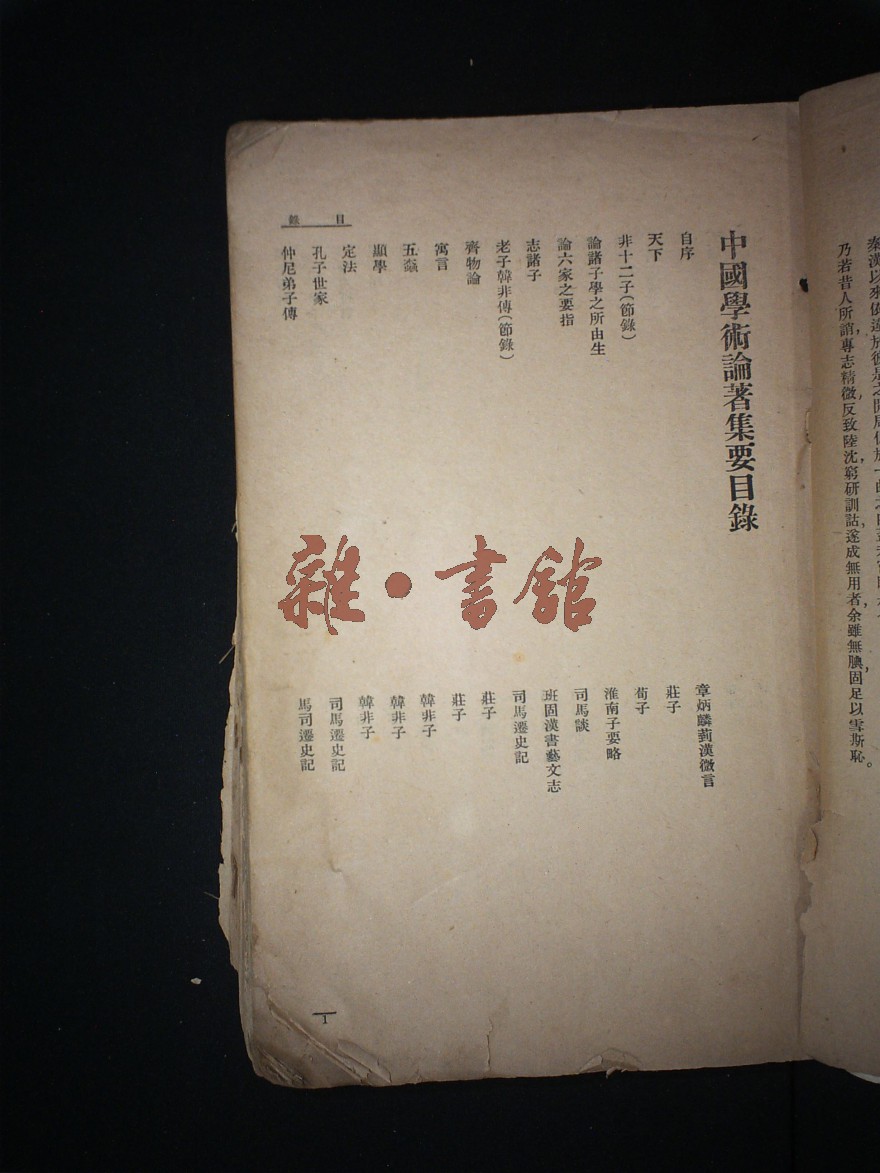 秦漢以來依違於彼是之間局促於一曲之內
乃若昔人所謂,專志精微,反致陸沈,窮研訓詁,遂成無用者,余雖無腆,固足以雪斯恥。
中國學術論著集要目錄
自序 章炳麟菿漢微言
天下 莊子
非十二子(節錄) 荀子
論諸子學之所由生 淮南子要略
論六家之要指 司馬談
志諸子 班固漢書藝文志
老子韓非傳(節錄) 司馬遷史記
齊物論 莊子
寓言 莊子
五蠹 韓非子
顯學 韓非子
定法 韓非子
孔子世家 司馬遷史記
仲尼弟子傳 馬司遷史記
目錄
1
雜·書館